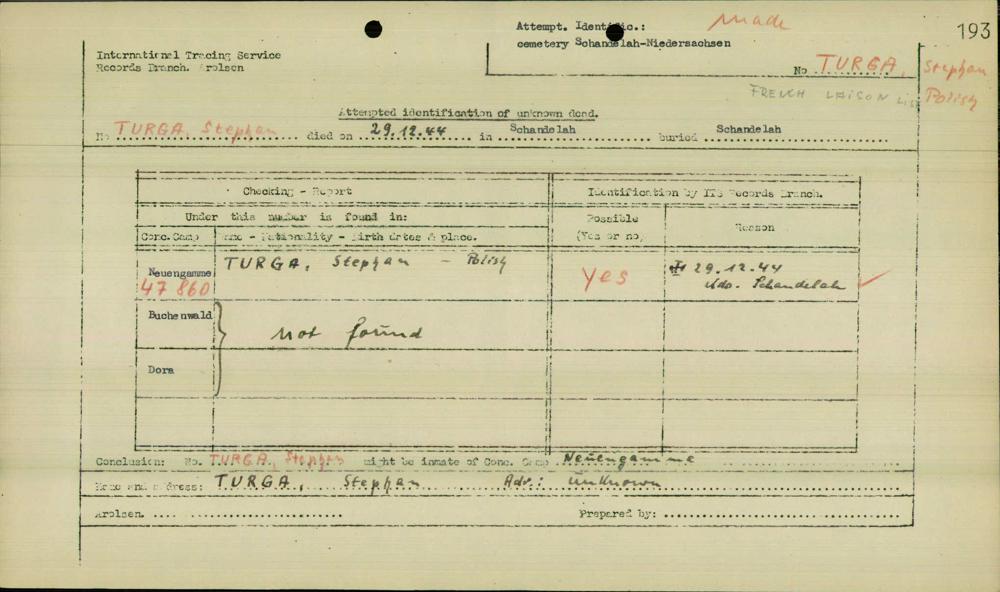 Attempt. Identific.: Made
193
cemetery Schandelah-Niedersachsen
International Tracing Service
Records Branch. Arolsen
No TURGA, Stephan
FRENCH LAISON List Polish
Attempted identification of unknown dead.
No TURGA, Stephan died on 29.12.44 in Schandelah buried Schandelah
Checking - Report
Identification by ITS Records Branch.
Under this number is found in:
Possible
(Yes or no)
Reason
Conc.Camp
Name - Nationality - Birth dates & place.
Neuengamme
47 860
TURGA, Stephan - Polish
yes
29.12.44
Kdo. Schandelah
Buchenwald
not found
Dora
Conclusion: No. TURGA, Stephan might be inmate of Conc. Camp Neuengamme
Name and address: TURGA, Stephan Adr.: unknown
Arolsen.
Prepared by: